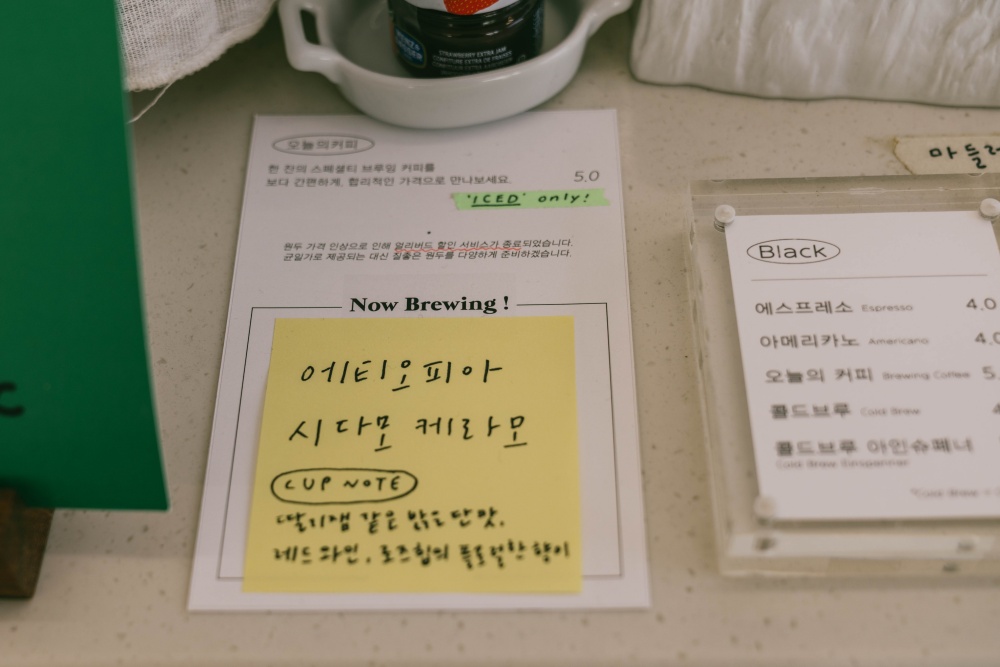 STRAWBERRY EXTRA JAM
오늘의커피
한 잔의 스페셜티 브루잉 커피를
보다 간편하게, 합리적인 가격으로 만나보세요.
5.0
'ICED' only!
원두 가격 인상으로 인해 얼리버드 할인 서비스가 종료되었습니다.
균일가로 제공되는 대신 질좋은 원두를 다양하게 준비하겠습니다.
Now Brewing !
에티오피아
시다모 케라모
CUP NOTE
딸기잼 같은 밝은 단맛.
레드와인, 로즈힙의 플로럴한 향이
마들레
Black
에스프레소 Espresso 4.0
아메리카노 Americano 4.0
오늘의 커피 Brewing Coffee 5.
콜드브루 Cold Brew 4
콜드브루 아인슈페너
Cold Brew Einspanner
*Cold Brew